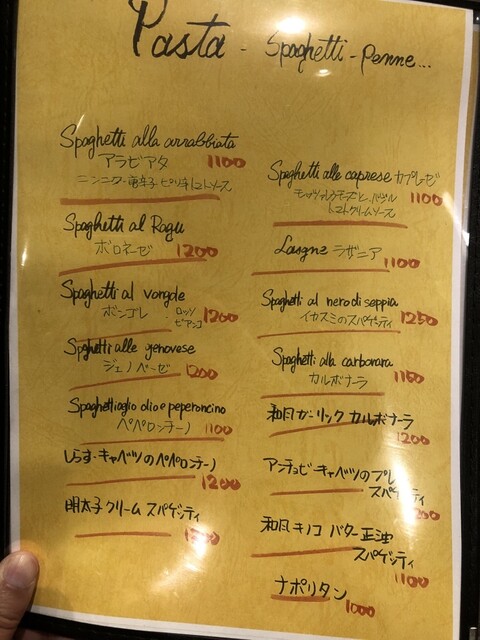 Pasta - Spaghetti - Penne...
Spaghetti alla arrabbiata
アラビアタ 1100
ニンニク・唐辛子ピリ辛トマトソース
Spaghetti al Ragu
ボロネーゼ 1200
Spaghetti al vongole
ボンゴレ ・ロッソ ビアンコ 1200
Spaghetti alle genovese
ジェノベーゼ 1200
Spaghetti aglio olio e peperoncino
ペペロンチーノ 1100
しらす・キャベツのペペロンチーノ
1200
明太子クリームスパゲッティ
Spaghetti alle caprese カプレーゼ
1100
モッツァレラチーズと、バジル
トマトクリームソース
Lasgne ラザニア
1100
Spaghetti al nero di seppia
イカスミのスパゲッティ 1250
Spaghetti alla carbonara
カルボナーラ 1150
和風ガーリックカルボナーラ
1200
アンチョビ・キャベツの
スパゲッティ
和風キノコバター正油
スパゲッティ
1100
ナポリタン
1000